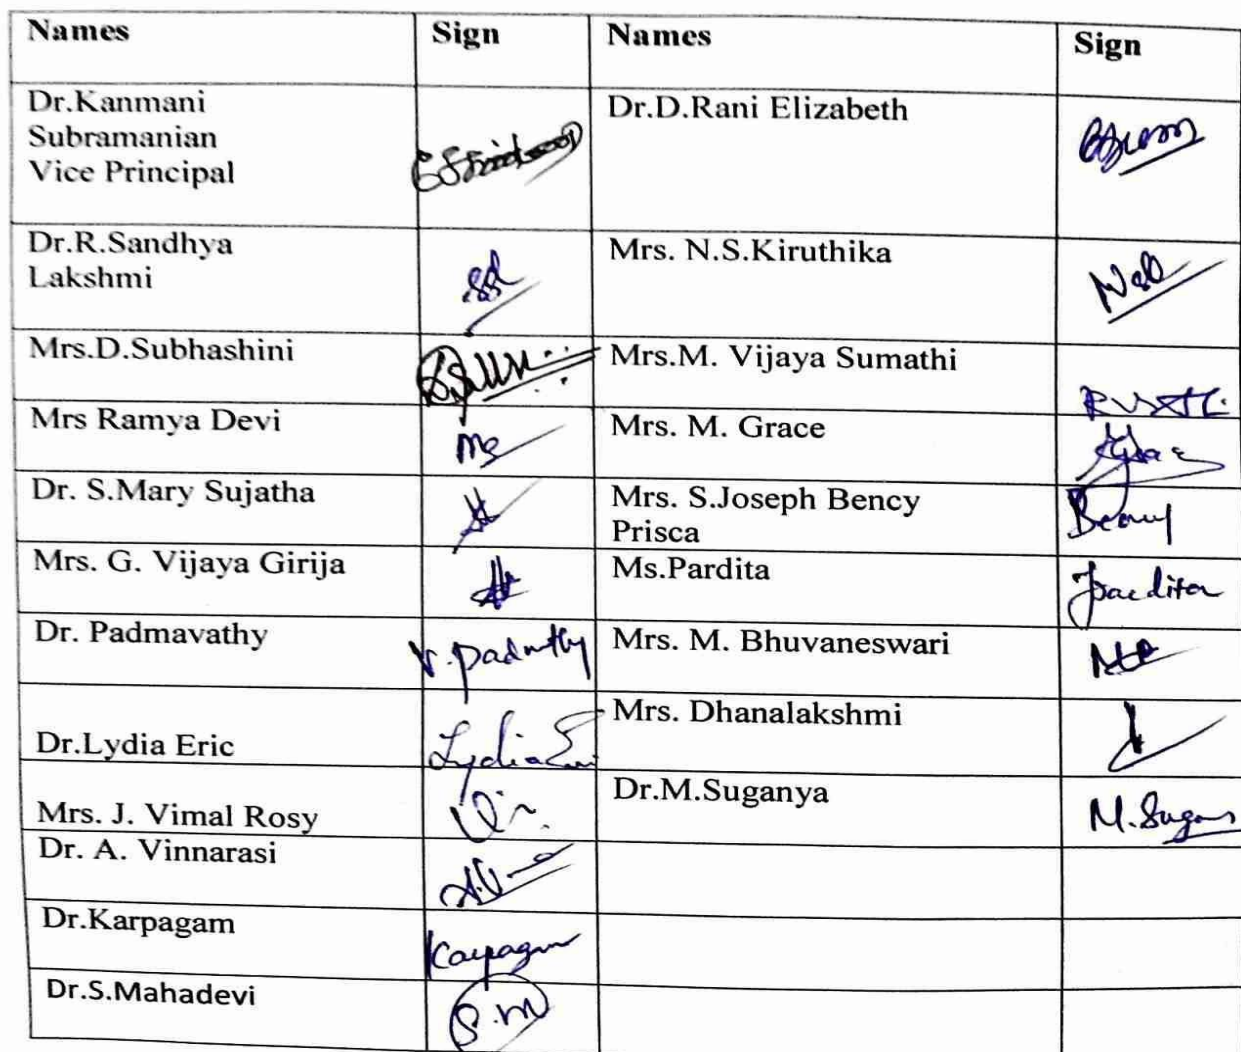 Names Sign Names Sign
Dr.Kanmani
Subramanian
Vice Principal
Dr.D.Rani Elizabeth
Dr.R.Sandhya
Lakshmi
Mrs. N.S.Kiruthika
Mrs.D.Subhashini
Mrs.M. Vijaya Sumathi
Mrs Ramya Devi
Mrs. M. Grace
Dr. S.Mary Sujatha
Mrs. S.Joseph Bency
Prisca
Bency
Mrs. G. Vijaya Girija
Ms.Pardita
Pardita
Dr. Padmavathy
Mrs. M. Bhuvaneswari
Dr.Lydia Eric
Lydia
Mrs. Dhanalakshmi
Mrs. J. Vimal Rosy
Dr.M.Suganya
Dr. A. Vinnarasi
Dr.Karpagam
Karpagam
Dr.S.Mahadevi
S.M